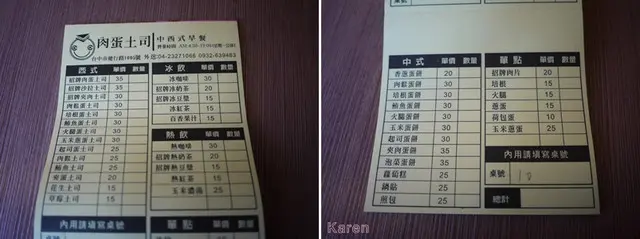 肉蛋土司 中西式早餐
營業時間
外送:04-23271066 0932-639483
西式 單價 數量
招牌肉蛋土司 35
招牌沙拉土司 35
招牌夾肉土司 30
肉鬆蛋土司 30
培根蛋土司 30
鮪魚蛋土司 30
火腿蛋土司 30
玉米蔥蛋土司 30
起司蛋土司 25
肉鬆土司 25
鮪魚土司 25
夾蛋土司 20
花生土司 15
草莓土司 15
內用請填寫桌號
桌號
冰飲 單價 數量
冰咖啡 30
招牌冰奶茶 20
招牌冰豆漿 15
冰紅茶 15
百香果汁 15
熱飲 單價 數量
熱咖啡 30
招牌熱奶茶 20
招牌熱豆漿 15
熱紅茶 15
玉米濃湯 25
單點 單價 數量
中式 單價 數量
香蔥蛋餅 20
肉鬆蛋餅 30
培根蛋餅 30
鮪魚蛋餅 30
火腿蛋餅 30
玉米蛋餅 30
起司蛋餅 30
夾肉蛋餅 35
泡菜蛋餅 35
蘿蔔糕 25
鍋貼 25
煎包 25
單點 單價 數量
招牌肉片 20
培根 15
火腿 15
蔥蛋 15
荷包蛋 10
玉米蔥蛋 25
內用請填寫桌號
桌號
總計
Karen